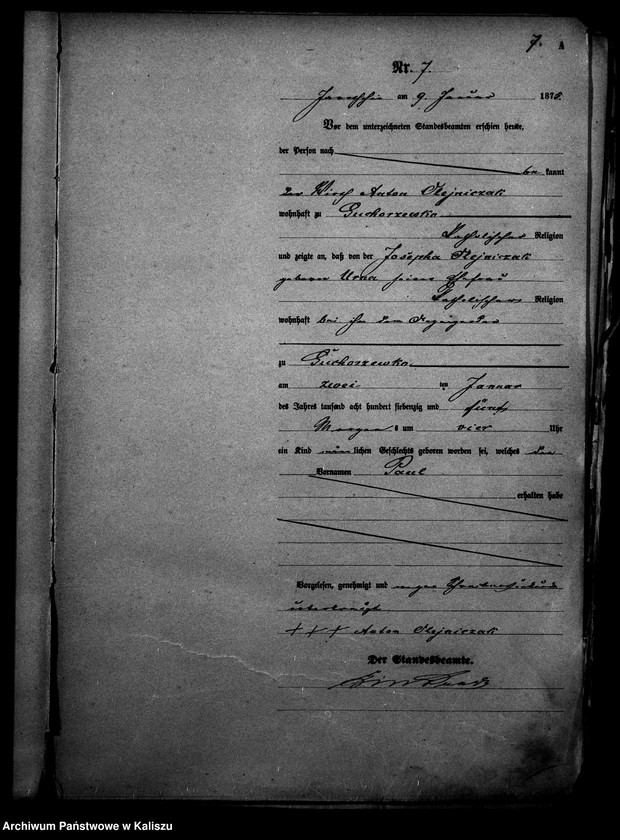 7. A
Nr. 7.
am 9. Januar 187
Vor dem unterzeichneten Standesbeamten erschien heute,
der Person nach
be kannt
der Wirth Anton Olejniczak
wohnhaft zu Suchorzewko
katholischer Religion
und zeigte an, daß von der Josepha Olejniczak
geborne Urna seiner Ehefrau
katholischer Religion
wohnhaft bei ihm dem Anzeigenden
zu Suchorzewko
am zwei ten Januar
des Jahres tausend acht hundert siebenzig und fünf
Morgen s um vier Uhr
ein Kind männlichen Geschlechts geboren worden sei, welches den
Vornamen Paul
erhalten habe
Vorgelesen, genehmigt und wegen
+++ Anton Olejniczak
Der Standesbeamte.
Archiwum Państwowe w Kaliszu